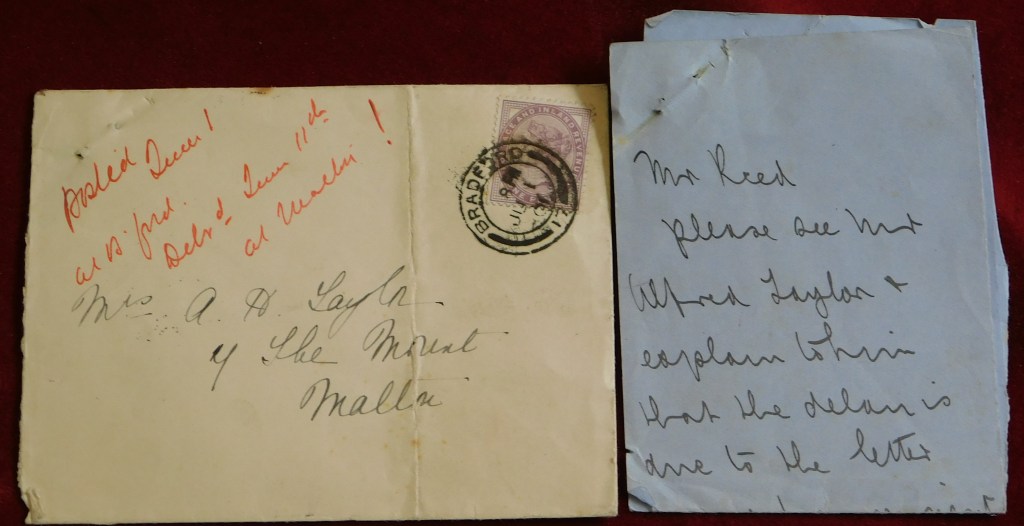 Posted June 1
at B'ford.
Delvd June 11th
at Malton !
Mrs. A. D. Taylor
The Mount
Malton
BRADFORD
JU 1
AND INLAND REVENUE
Mr Reed
please see Mr
Alfred Taylor &
explain to him
that the delay is
due to the letter